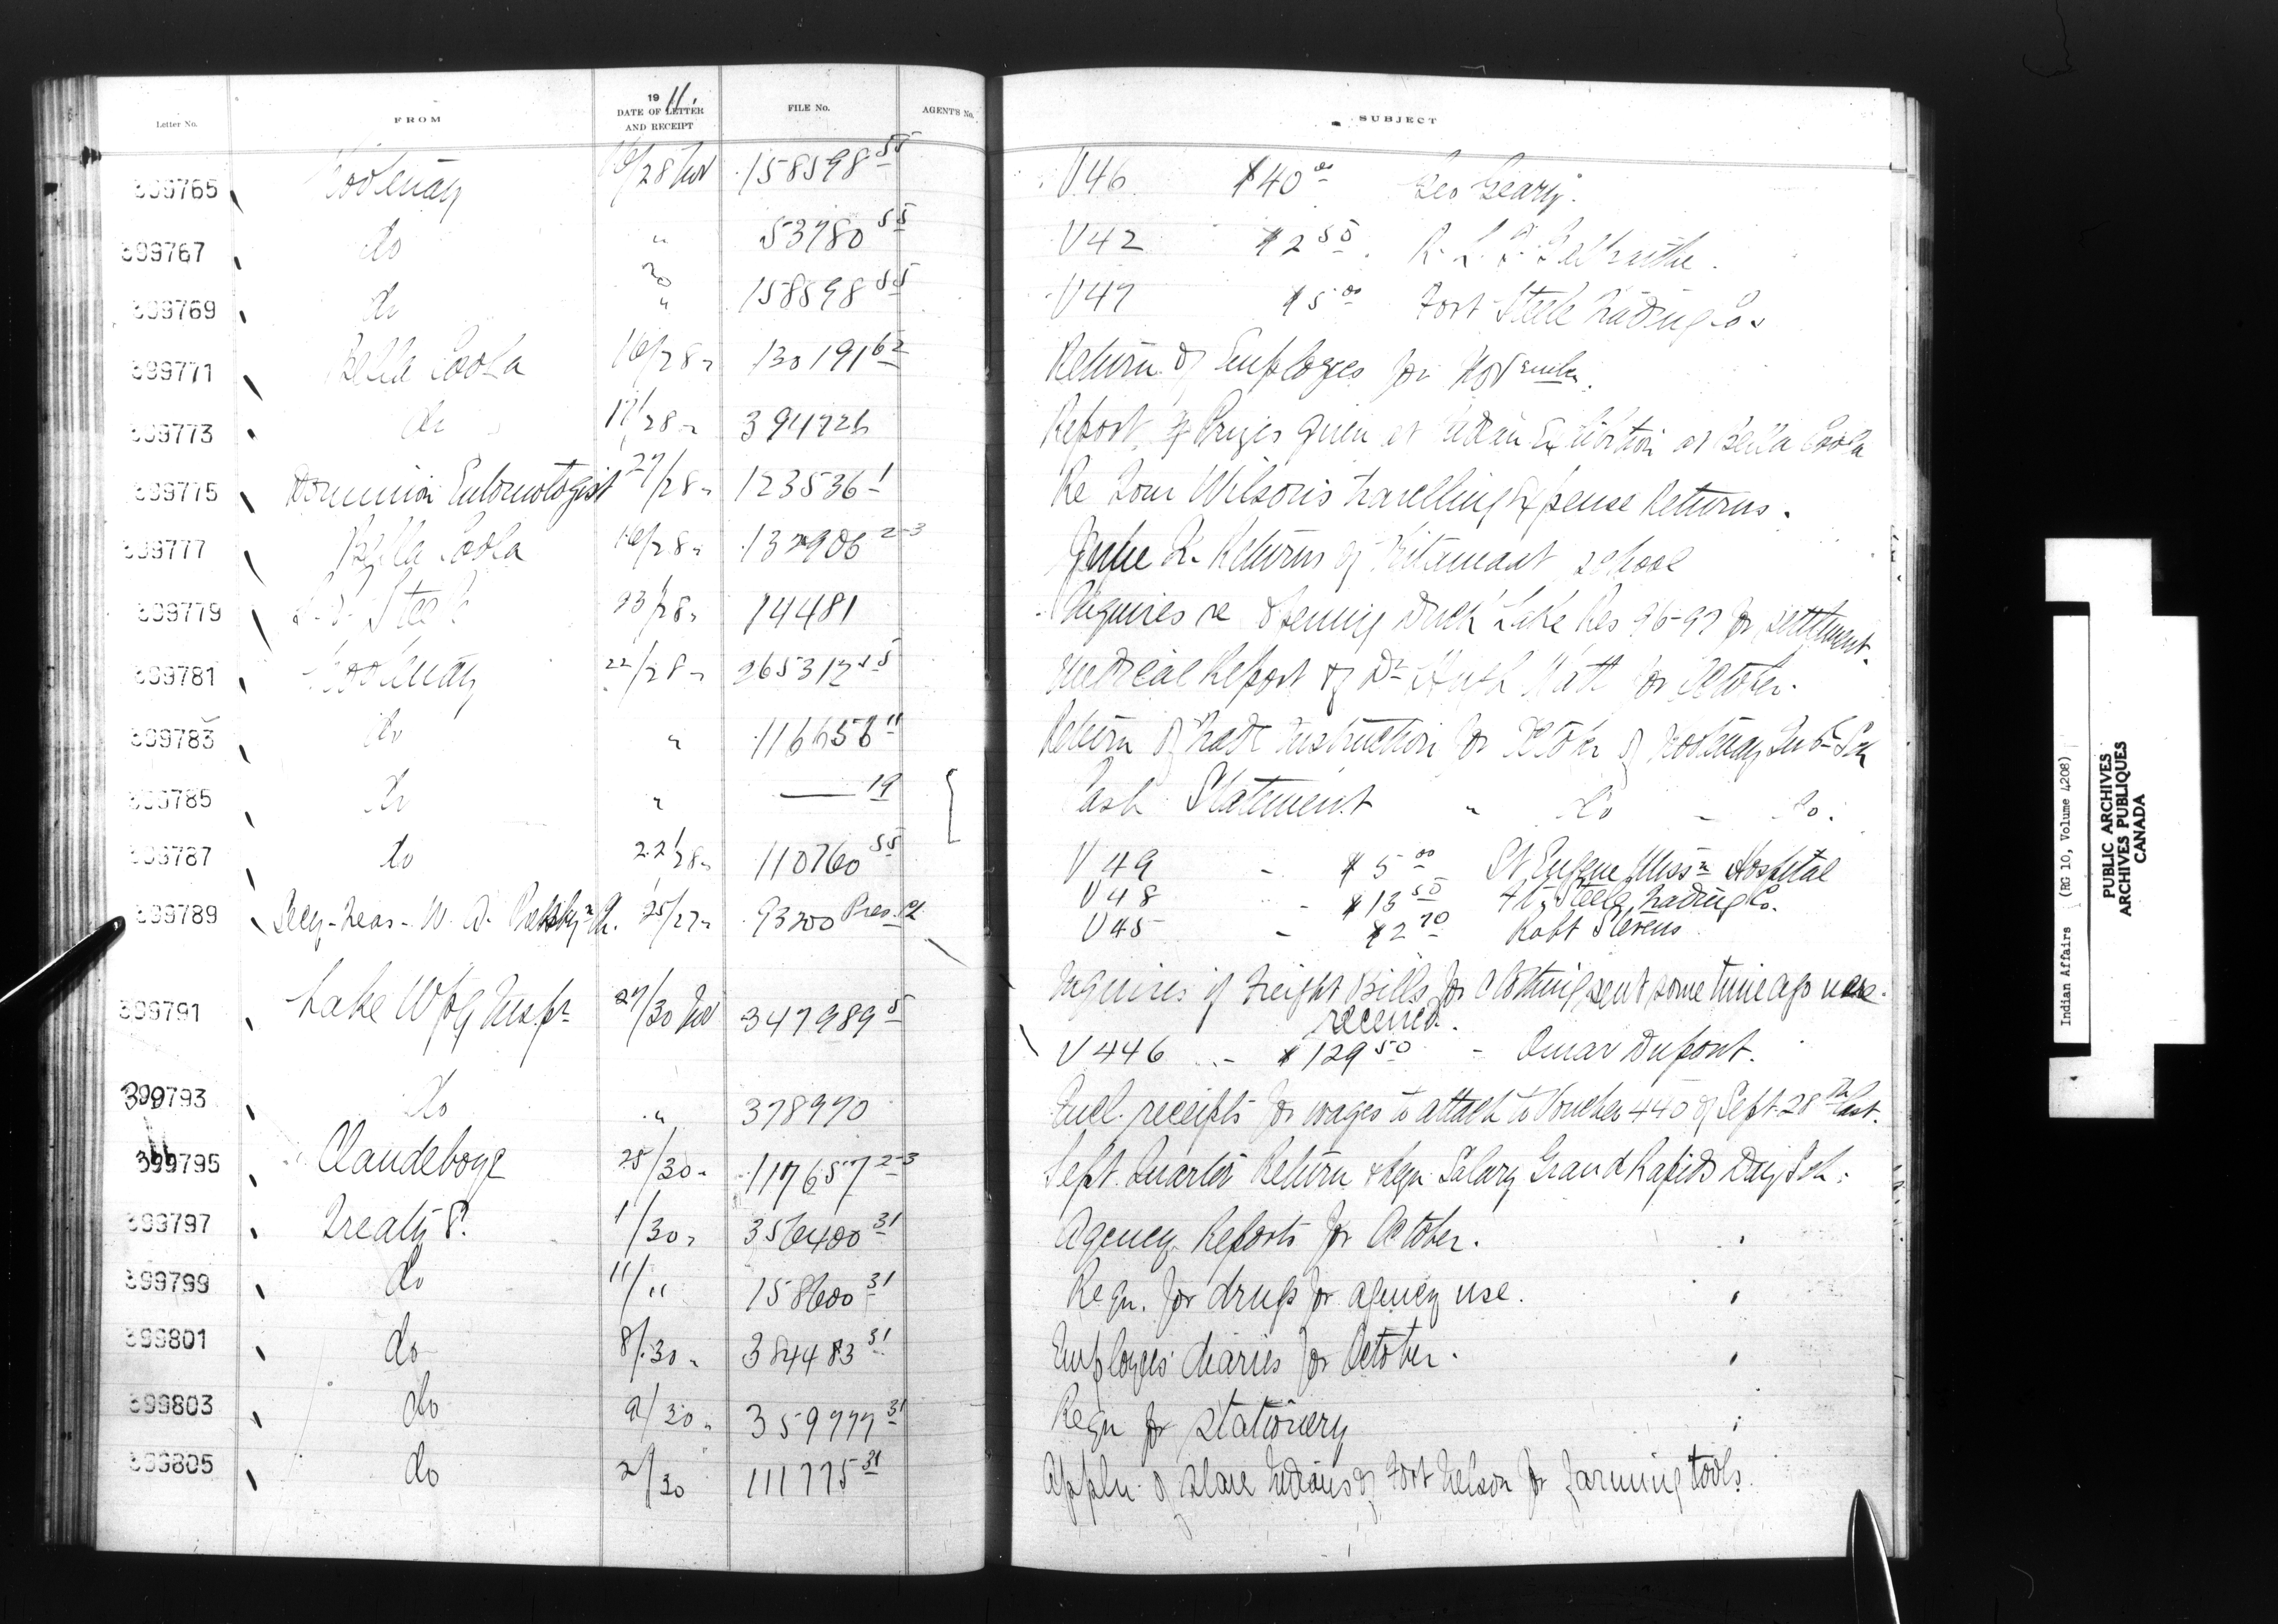 1911.
Letter No. FROM DATE OF LETTER AND RECEIPT FILE No. AGENT'S No. SUBJECT
399765 Kootenay 16/28 Nov 158598 55 V46 $40 00 Geo Geary.
399767 do " 53780 55 V42 $2 50. R. L. T. Galbraithe.
399769 do 20 " 158598 55 V47 $5 00 Fort Steele Trading Co.
399771 Bella Coola 16/28 " 130191 62 Return of Employes for November.
399773 do 17/28 " 394726 Report of Prizes given at Indian Exhibition at Bella Coola
399775 Dominion Entomologist 27/28 " 123536-1 Re Tom Wilson's travelling Expense Returns.
399777 Bella Coola 16/28 " 132906 2-3 June Qr. Returns of Kitamaat school
399779 Steele 23/28 " 74481 Inquires re opening Duck Lake Res 96-97 for settlement.
399781 Kootenay 22/28 " 265312 55 Medical Report of Dr Hugh Watt for October.
399783 do " 116656 11 Return of Trade Instruction for October of Kootenay Industl Sch
399785 do " —— 19 Cash Statement " do - do.
399787 do 22/28 " 110760 55 V49 - $5 00 St Eugene Missn Hospital
V48 - $13 50 Ft. Steele Trading Co.
V45 - $2 70 Robt Stevens
399789 Secy-Treas - W. A. Presbyn Ch. 25/27 " 93200 Pres. Ch Inquires if Freight Bills for clothing sent some time ago were
received.
399791 Lake Wpg Inspr 27/30 Nov 347989 5 V446 - $129 50 - Omar Dupont.
399793 do " 378970 Encl. receipts for wages to attach to Voucher 440 of Sept. 28th last.
399795 Clandeboye 25/30 " 117657 2-3 Sept. Quarter Return & Reqn Salary Grand Rapids Day Sch.
399797 Treaty 8. 1/30 " 356400 31 Agency Reports for October.
399799 do 11/" 158600 31 Reqn. for drugs for agency use.
399801 do 8/30 " 384483 31 Employees' diaries for October.
399803 do 9/30 " 359777 31 Reqn for stationery
399805 do 2/30 111775 31 Appln. of Slave Indians of Fort Nelson for farming tools.
Indian Affairs (RG 10, Volume 4208)
PUBLIC ARCHIVES
ARCHIVES PUBLIQUES
CANADA